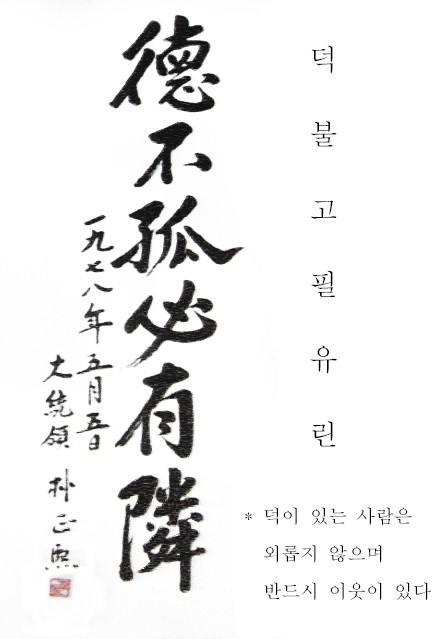 德不孤必有隣
一九七八年五月五日
大統領 朴正熙
덕불고필유린
* 덕이 있는 사람은
외롭지 않으며
반드시 이웃이 있다